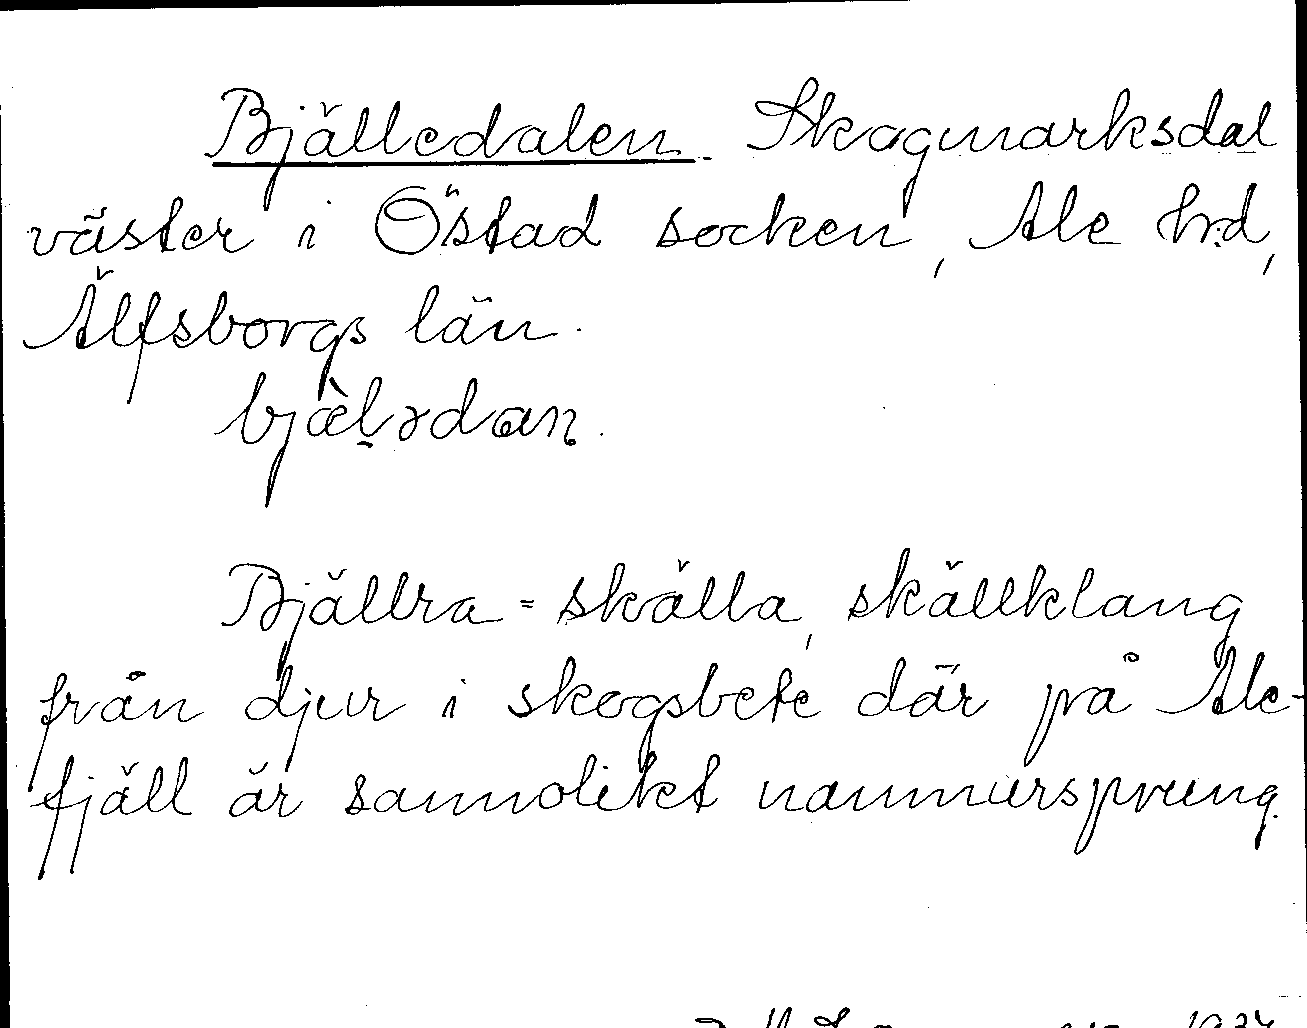 Bjälledalen. Skogmarksdal
väster i Östad socken, Ale hrd,
Älfsborgs län.
bjæ̀l̥ədan.
Bjällra = skälla, skällklang
från djur i skogsbete där på Ale-
fjäll är sannolikt namnursprung.